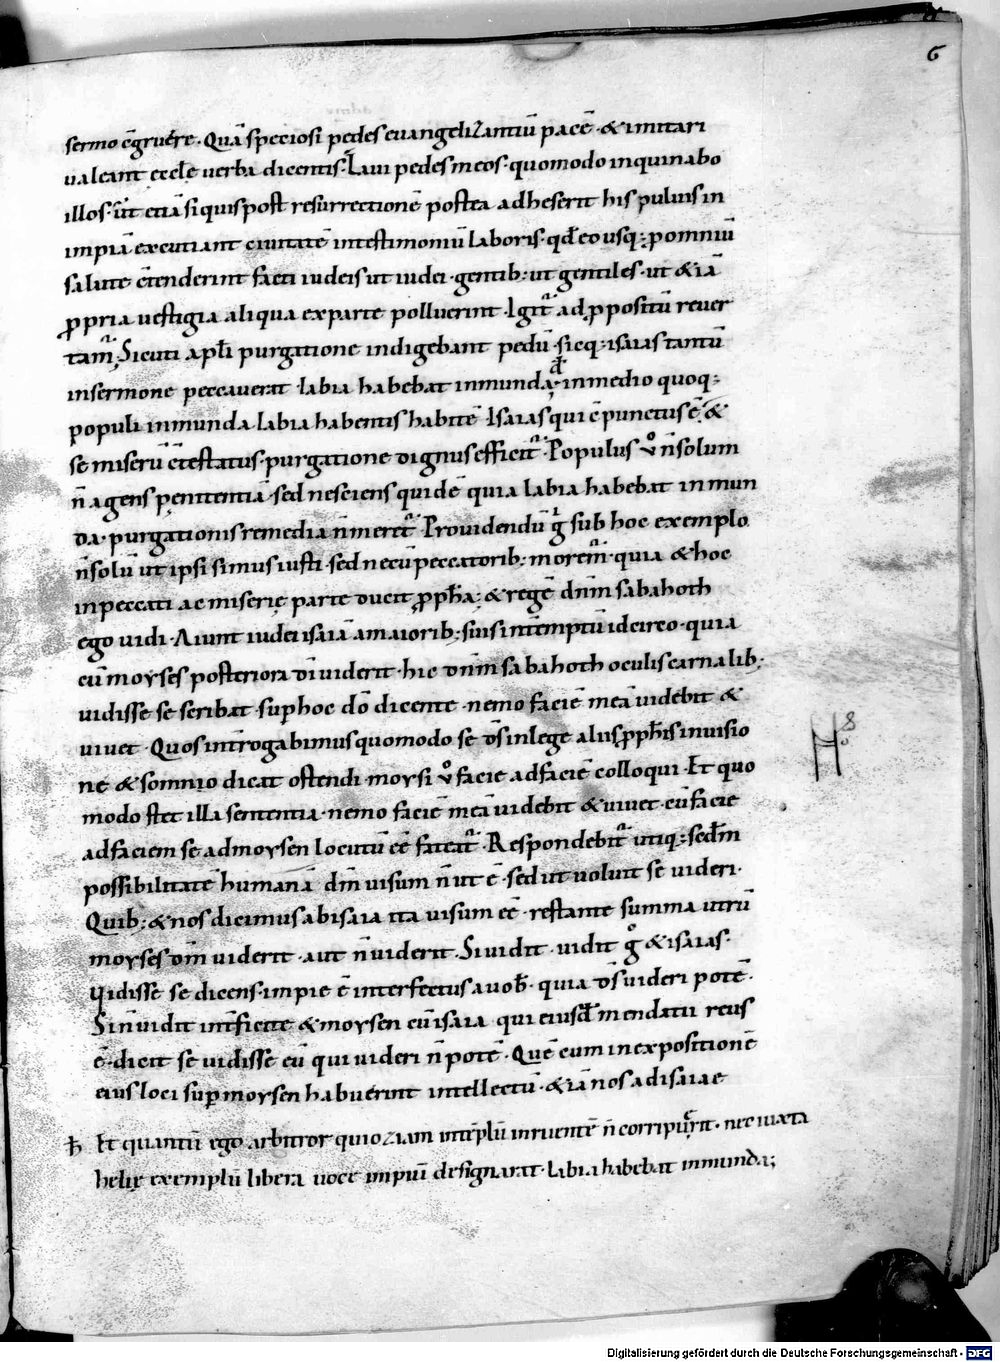 6
sermo c̄gruere. Quā speciosi pedes euangelizantiū pacē. & imitari
ualeant eccłę uerba dicentis. Laui pedes meos. quomodo inquinabo
illos. ūt etiā siquis post resurrectionē postea adheserit his puluis in
impiā excutiant ciuitatē intestimoniū laboris. qđ eousq; p omniū
salute c̄tenderint facti iudeis ut iudei. gentib; ut gentiles. ut & iā
ꝓpria uestigia aliqua exparte polluerint. Igit᷑ ad ꝓpositū reuer
tam᷑. Sicuti apłi purgatione indigebant pedū. sicq; isaias tantū
insermone peccauerat. labia habebat inmunda. inmedio quoq;
populi inmunda labia habentis habitē. Isaias qui c̄punctus ē. &
se miserū c̄testatus. purgatione dignus efficit᷑. Populus v̊ n̄ solum
n̄ agens penitentiā. sed nesciens quidē quia labia habebat inmun
da. purgationis remedia n̄ meret᷑. Prouidendū g̊ sub hoc exemplo
n̄ solū ut ipsi simus iusti. sed ne cū peccatorib; morem᷑. quia & hoc
inpeccati ac miserię parte ducit ꝓpħa; & regē dnm̄ sabahoth
ego uidi. Aiunt iudei isaiā amaiorib; suis int̄emptū idcirco. quia
cū moyses posteriora dī uiderit. hic dnm̄ sabahoth oculis carnalib;
uidisse se scribat. sup hoc dō dicente. nemo faciē meā uidebit &
uiuet. Quos int̄rogabimus quomodo se dꝰ inlege aliis ꝓpħis inuisio
ne & somnio dicat ostendi. moysi v̊ facie adfaciē colloqui. Et quo
modo stet illa sententia. nemo faciē meā uidebit & uiuet. cū facie
adfaciem se admoysen locutū eē fateat᷑. Respondebit᷑ utiq; sedm̄
possibilitatē humanā dm̄ uisum n̄ ut ē. sed ut uoluit se uideri.
Quib; & nos dicimus abisaia ita uisum eē. restante summa utrū
moyses dm̄ uiderit. aut n̄ uiderit. Si uidit. uidit g̊ & isaias.
Qidisse se dicens. impie ē interfectus auob̄. quia ds̄ uideri potē.
Si n̄ uidit int̄ficite & moysen cū isaia qui eiusđ mendatii reus
ē. dicit se uidisse eū qui uideri n̄ potē. Quē cum inexpositionē
eius loci sup moysen habuerint intellectū. & iā nos ad isaiae
ħ Et quantū ego arbitror quioziam int̄eplū inruentē n̄ corripu᷑rit. nec iuxta
helię exemplū libera uoce impiū designarat. labia habebat inmunda;
Digitalisierung gefördert durch die Deutsche Forschungsgemeinschaft - DFG